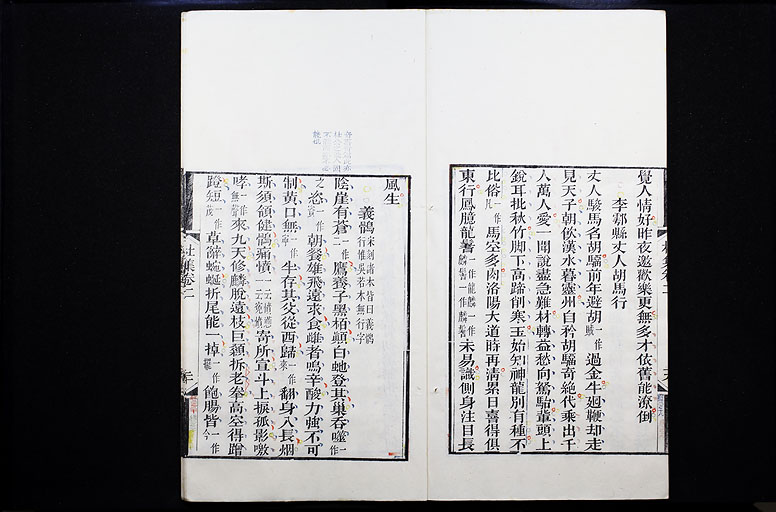 覺人情好昨夜邀歡樂更無多才依舊能潦倒
李鄠縣丈人胡馬行
丈人駿馬名胡騮前年避胡一作賊過金牛廻鞭却走
見天子朝飲漢水暮靈州自矜胡騮奇絕代乘出千
人萬人愛一聞說盡急難材轉益愁向駑駘輩頭上
銳耳批秋竹脚下高蹄削寒玉始知神龍別有種不
比俗一作凡馬空多肉洛陽大道時再清累日喜得俱
東行鳳臆龍鬐一作龍麟一作麟鬐未易識側身注目長
風生
義鶻宋刻諸本皆曰義鶻行惟吳若本無行字
陰崖有蒼一作二鷹養子黑柏顛白虵登其巢吞噬一作
之恣一作朝餐雄飛遠求食雌者鳴辛酸力強不可
制黃口無一作寧半存其父從西歸一作來翻身入長烟
斯須領健鶻痛憤寄所宣斗上捩孤影噭
哮一作無聲來九天修鱗脫遠枝巨顙拆老拳高空得蹭
蹬短一作茂草辭蜿蜒折尾能一掉一作擺飽腸皆一作今
杜集卷二